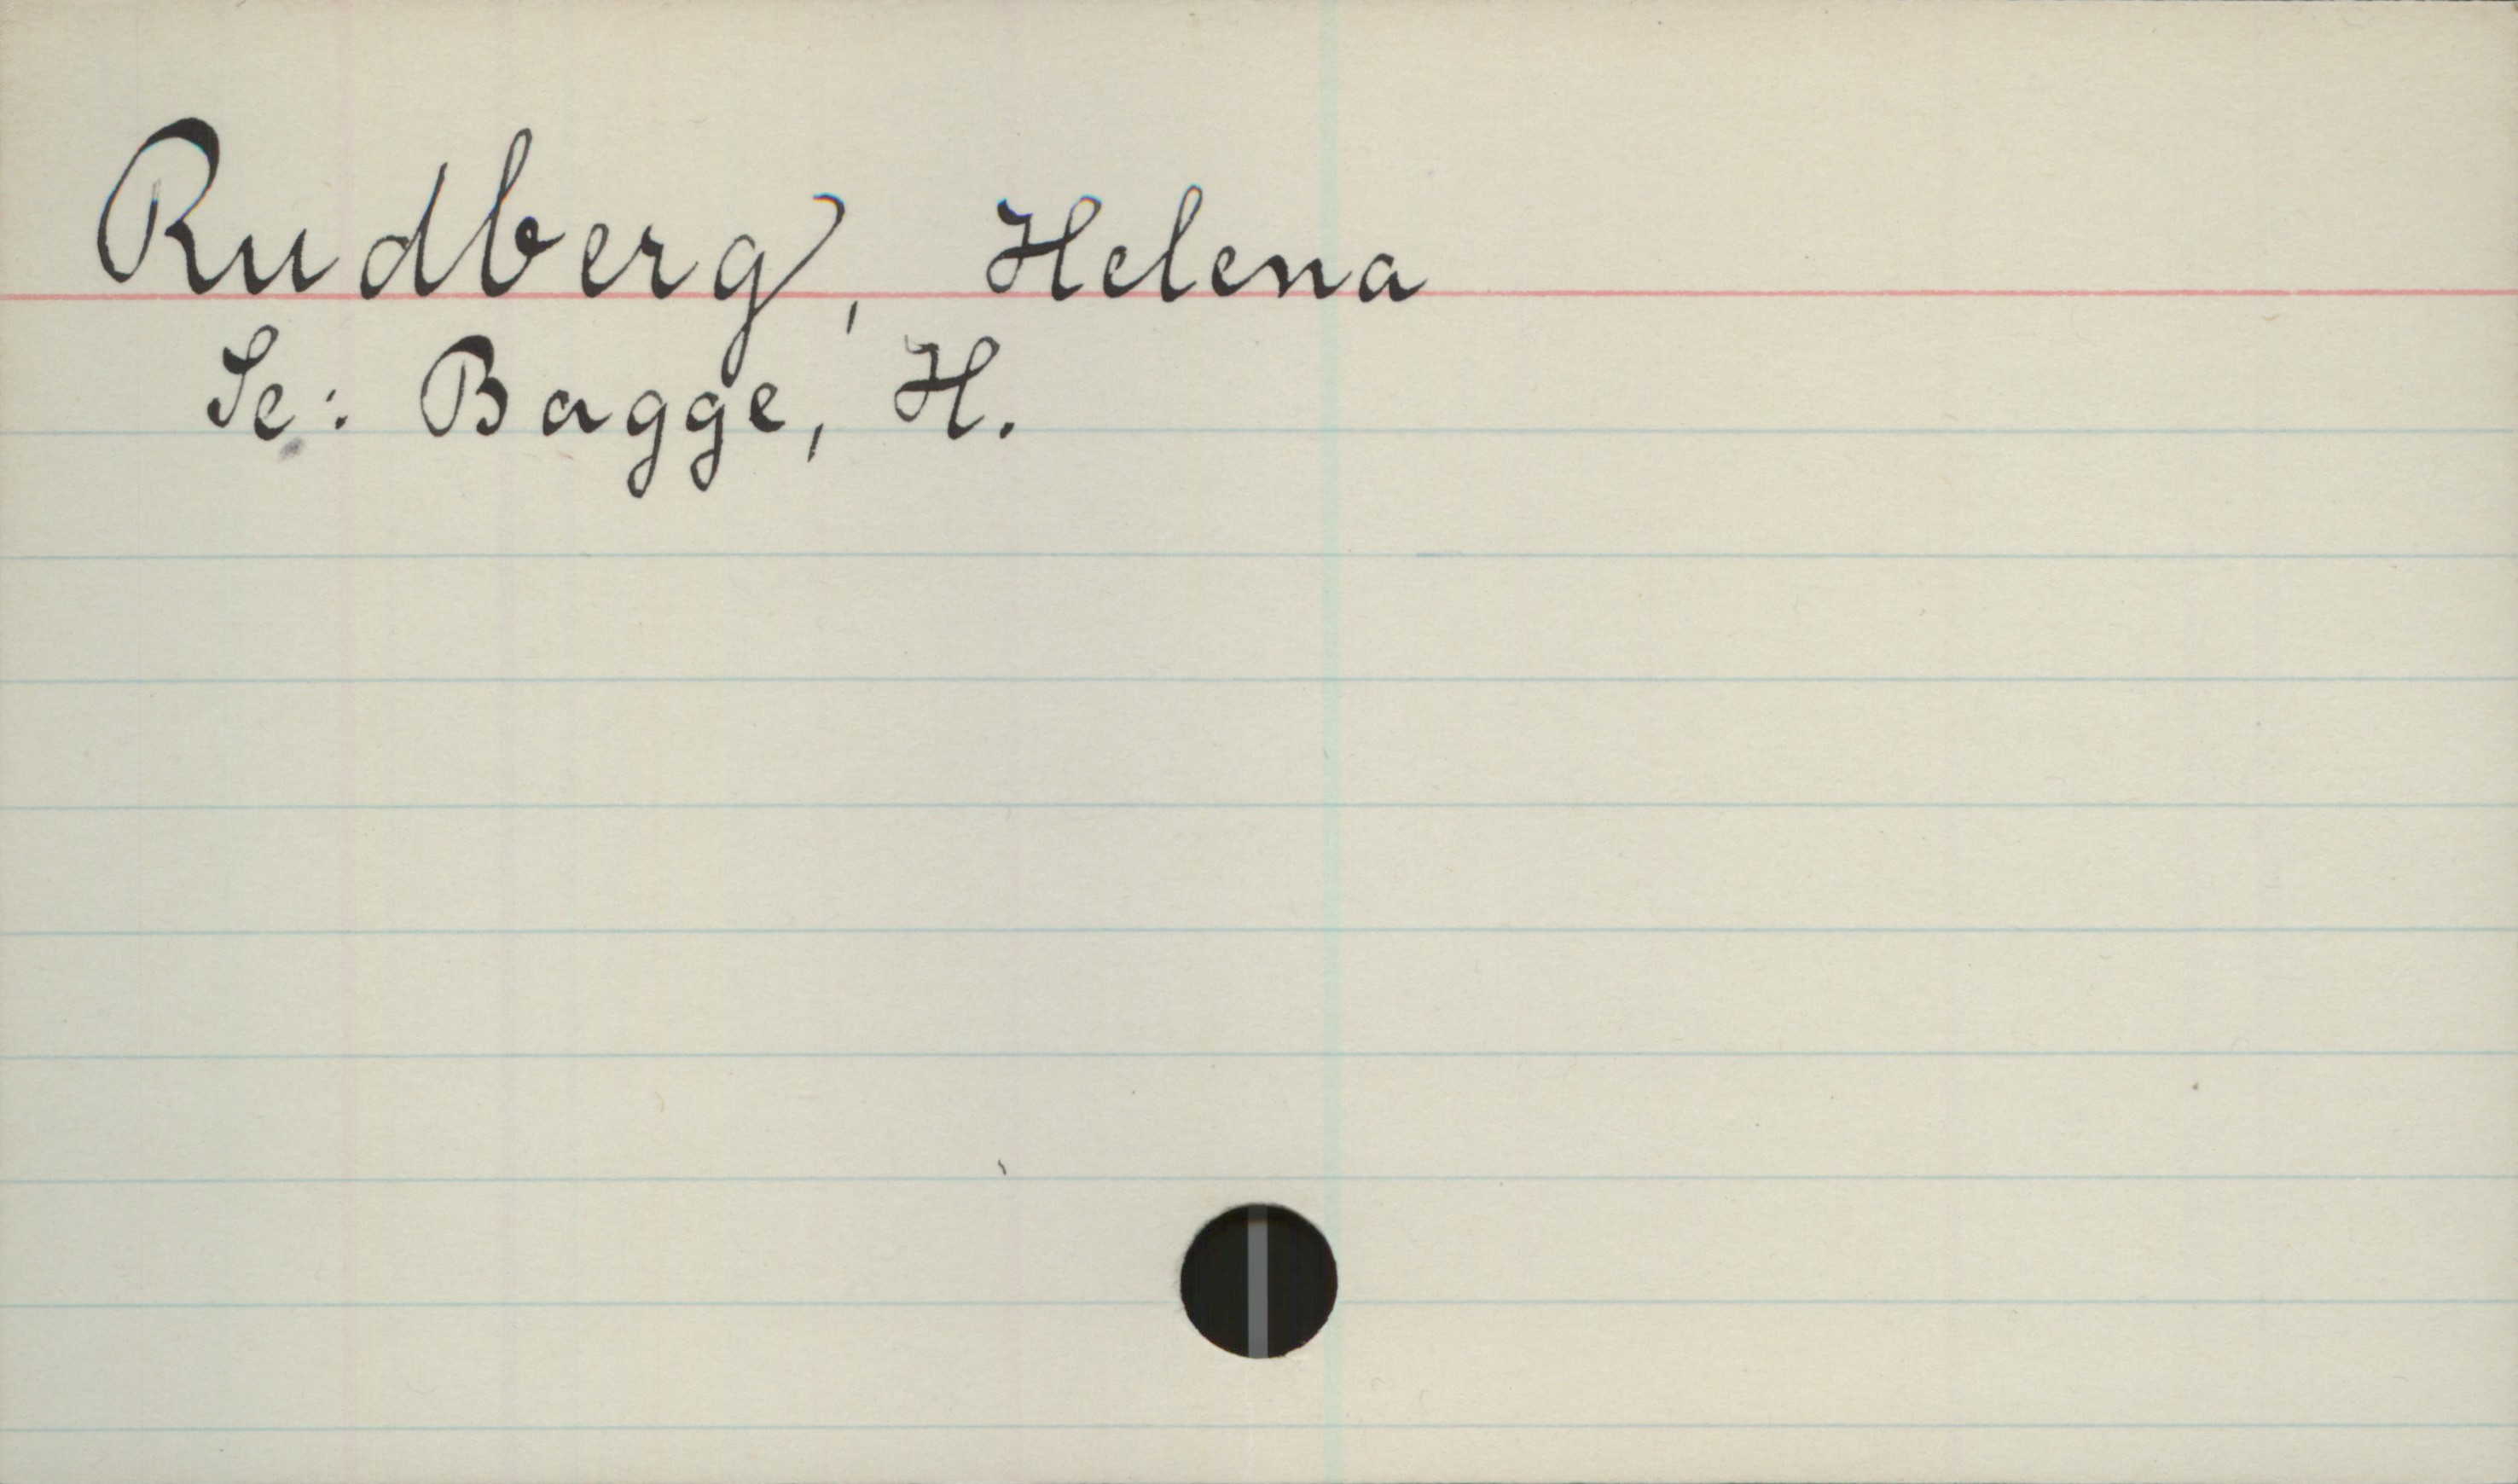 Rudberg, Helena
Se: Bagge, H.